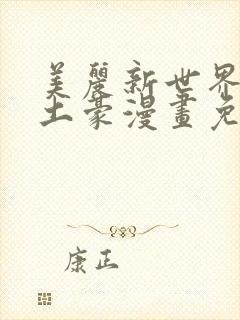 美麗新世界
土豪漫畫免
康正